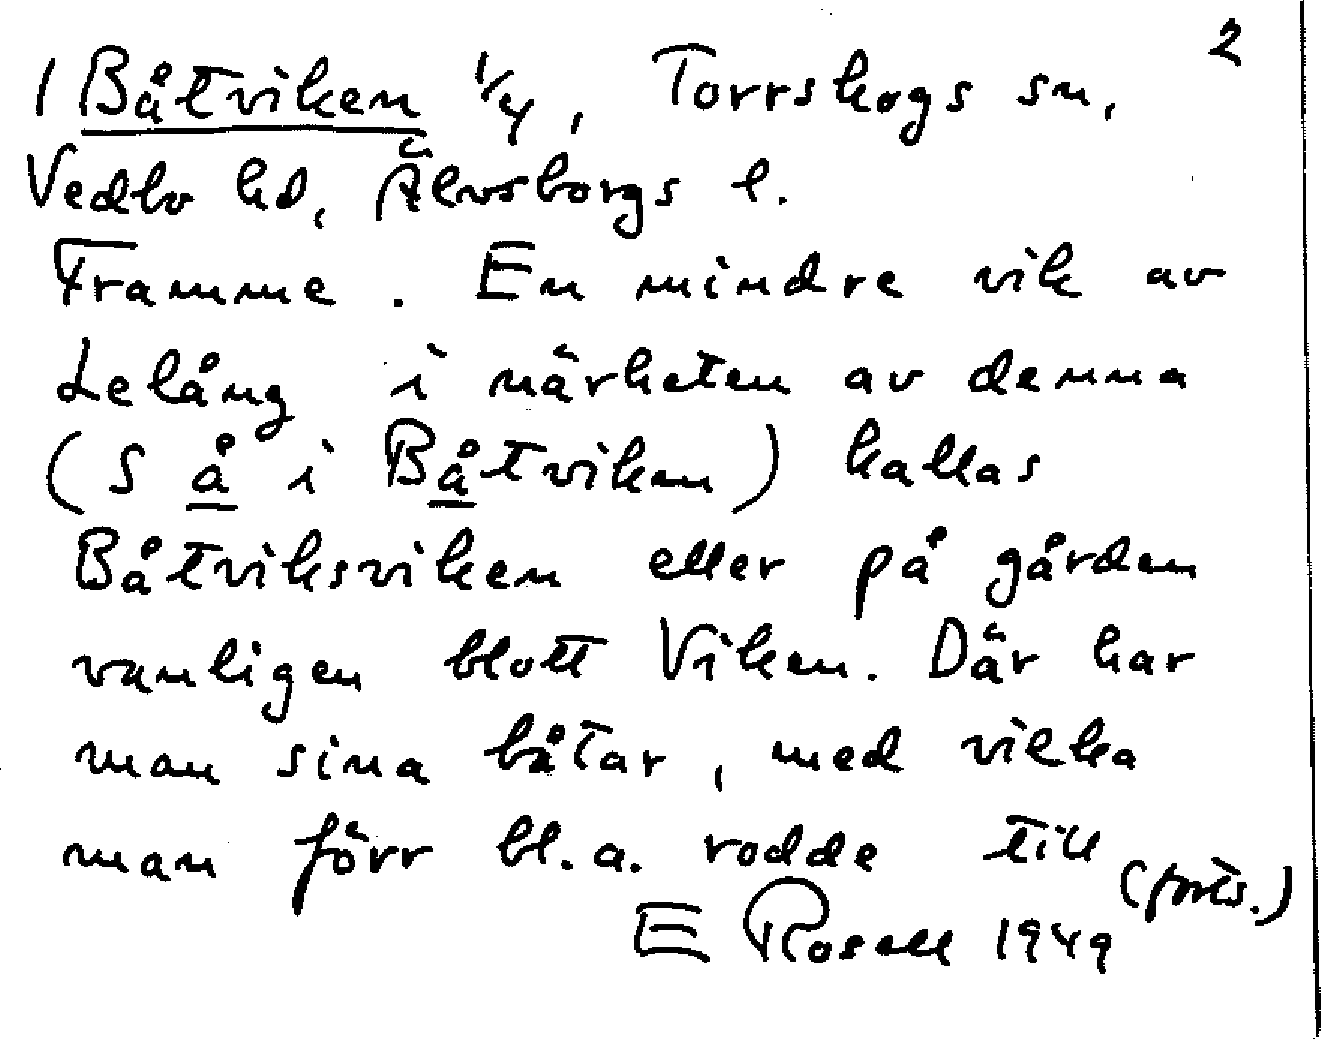 2
1 Båtviken 1/4, Torrskogs sn,
Vedbo hd, Älvsborgs l.
Framme. En mindre vik av
Lelång i närheten av denna
(S å i Båtviken) kallas
Båtviksviken eller på gården
vanligen blott Viken. Där har
man sina båtar, med vilka
man förr bl.a. rodde till
(forts.)
E Rosell 1949